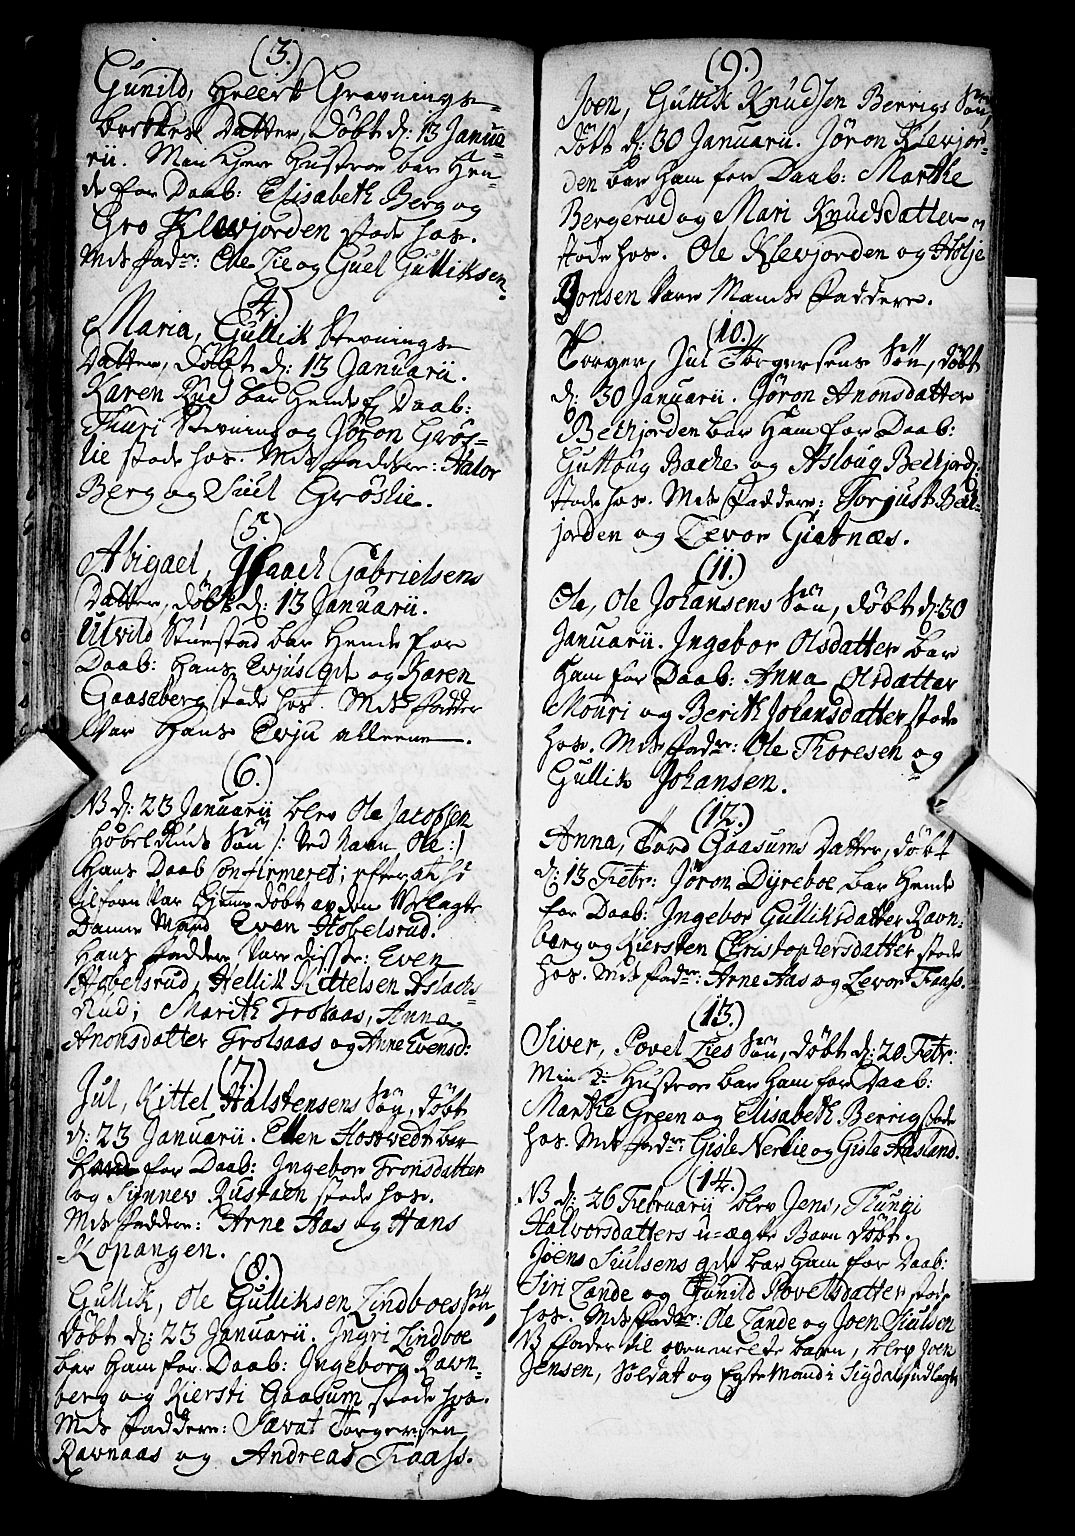 (3.)
Gunild, Gravnings-
Datter, Døbt d: 13 Janua-
rii. Hustroe bar Hen-
de for Daab: Elisabeth Berg og
Gro Klevjorden stode hos.
Mds fadr: Ole Lie og Guel Gulliksen.
(4.)
Maria, Gullik Stevnings
Datter, Døbt d: 13 Januarii.
Karen Rud bar Hende f Daab:
Thuri Stevning og Jøron Grøs-
lie stode hos. Mds fadder: Halvor
Berg og Siul Grøslie.
(5.)
Abigael, Isaach Gabrielsens
Datter, Døbt d: 13 Januarii.
bar Hende for
Daab: Hans Evjus qde og Karen
Gaaseberg stode hos. Mds fadder
Var Hans Evju alleene.
(6.)
NB d: 23 Januarii blev Ole Jacobsen
Hobelsruds Søn /: Ved Navn Ole :/
Hans Daab Confirmeret; efter at
tilforn Var Hjemedøbt av den
Danne Mand Even Hobelsrud.
Hans faddere Vare disse: Even
Hobelsrud, Hellik Kittelsen Aslachs-
Rud; Marith Trolsaas, Anna
Anonsdatter Trolsaas og Anne Evensd:
(7.)
Jul, Kittel Halstensens Søn, døbt
d: 23 Januarii. Ellen Hostvedt bar
for Daab: Ingebor Tronsdatter
og Sønnev Rustaen stode hos.
Mds faddere: Arne Aas og Hans
Kopangen.
(8.)
Gullik, Ole Gulliksen Lindboes Søn,
Døbt d: 23 Januarii. Ingri Lindboe
bar Ham for Daab: Ingeborg Ravn-
berg og Kiersti Gaasum stode hos.
Mds faddere: Sævat Torgersen
Ravnaas og Andreas Fraass.
(9.)
Joen, Gullik Knudsen Berrigs Søn,
Døbt d: 30 Januarii. Jøron Klevjor-
den bar Ham for Daab: Marthe
Bergerud og Mari Knudsdatter
stode hos. Ole Klevjorden og Holje
Jonsen Vare Mands faddere.
(10.)
Torger, Jul Torgersens Søn, døbt
d: 30 Januarii. Jøron Anonsdatter
Bethjorden bar Ham for Daab:
Guttoug Bache og Asloug Bethjord:
stode hos. Mds faddere: Torjus Bet-
jorden og Tevor Giatnæs.
(11.)
Ole, Ole Johansens Søn, døbt d: 30
Januarii. Ingebor Olsdatter bar
Ham for Daab: Anna Olsdatter
Mouri og Berith Johansdatter stode
hos. Mds fadr: Ole Thoresen og
Gullik Johansen.
(12.)
Anna, Tord Gaasums Datter, døbt
d: 13 Febr: Jøron Dyreboe bar Hende
for Daab: Ingebor Gulliksdatter Ravn-
berg og Kiersten Christophersdatter stode
hos. Mds fadr: Arne Aas og Levor Fraass.
(13.)
Siver, Povel Lies Søn, døbt d: 20 Febr:
Min Hustroe bar Ham for Daab:
Marthe Green og Elisabeth Berrig stode
hos. Mds fadr: Gisle Nerlie og Gisle Aasland.
(14.)
NB d: 26 Februarii blev Jens, Thuri
Halvorsdatters u-ægte Barn døbt.
Joens Siulsens qde bar Ham for Daab:
Siri Lande og Gunild Povelsdatter stode
hos. Mds fadr: Ole Lande og Joen Siulson
NB fader til ovenmelte barn, blev Joen
Jensen, Soldat og Egte Mand i Sigdal, udlagt